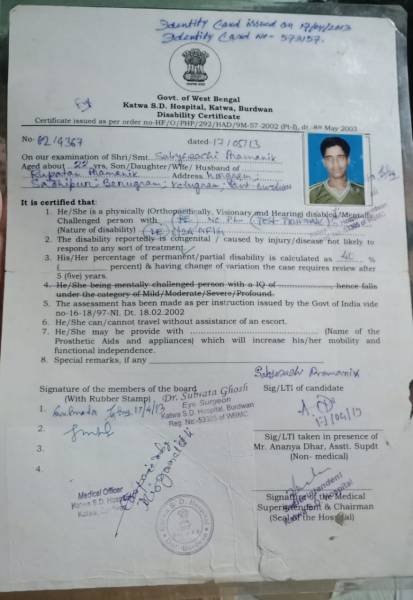 Identity Card issued on 17/04/2013
Identity Card No- 573157.
Govt. of West Bengal
Katwa S.D. Hospital, Katwa, Burdwan
Disability Certificate
Certificate issued as per order no-HF/O/PHP/292/HAD/9M-57-2002 (Pt-I), dt. 8th May 2003
No- 02/9367 dated-17/05/13
On our examination of Shri/Smt. Sabyasachi Pramanik
Aged about 22 yrs, Son/Daughter/Wife/ Husband of
Rupatan Pramanik Address
It is certified that:
1. He/She is a physically (Orthopaetically, Visionary and Hearing) disabled/Mentally
Challenged person with
(Nature of disability)
2. The disability reportedly is congenital / caused by injury/disease not likely to
respond to any sort of treatment.
3. His/Her percentage of permanent/partial disability is calculated as 40 %
( percent) & having change of variation the case requires review after
5 (five) years.
4. He/She being mentally challenged person with a IQ of ..................., hence falls
under the category of Mild/Moderate/Severe/Profound.
5. The assessment has been made as per instruction issued by the Govt of India vide
no-16-18/97-NI. Dt. 18.02.2002
6. He/She can/cannot travel without assistance of an escort.
7. He/She may be provide with ................................ (Name of the
Prosthetic Aids and appliances) which will increase his/her mobility and
functional independence.
8. Special remarks, if any
Sabyasachi Pramanik
Signature of the members of the board Sig/LTI of candidate
(With Rubber Stamp)
Dr. Subrata Ghosh
Eye Surgeon
Katwa S.D. Hospital, Burdwan
Reg. No-53305 of WBMC
1. 17/4/13
17/04/13
2.
3.
4.
Sig/LTI taken in presence of
Mr. Ananya Dhar, Asstt. Supdt
(Non- medical)
Medical Officer
Katwa S.D. Hospital
Signature of the Medical
Superintendent & Chairman
(Seal of the Hospital)